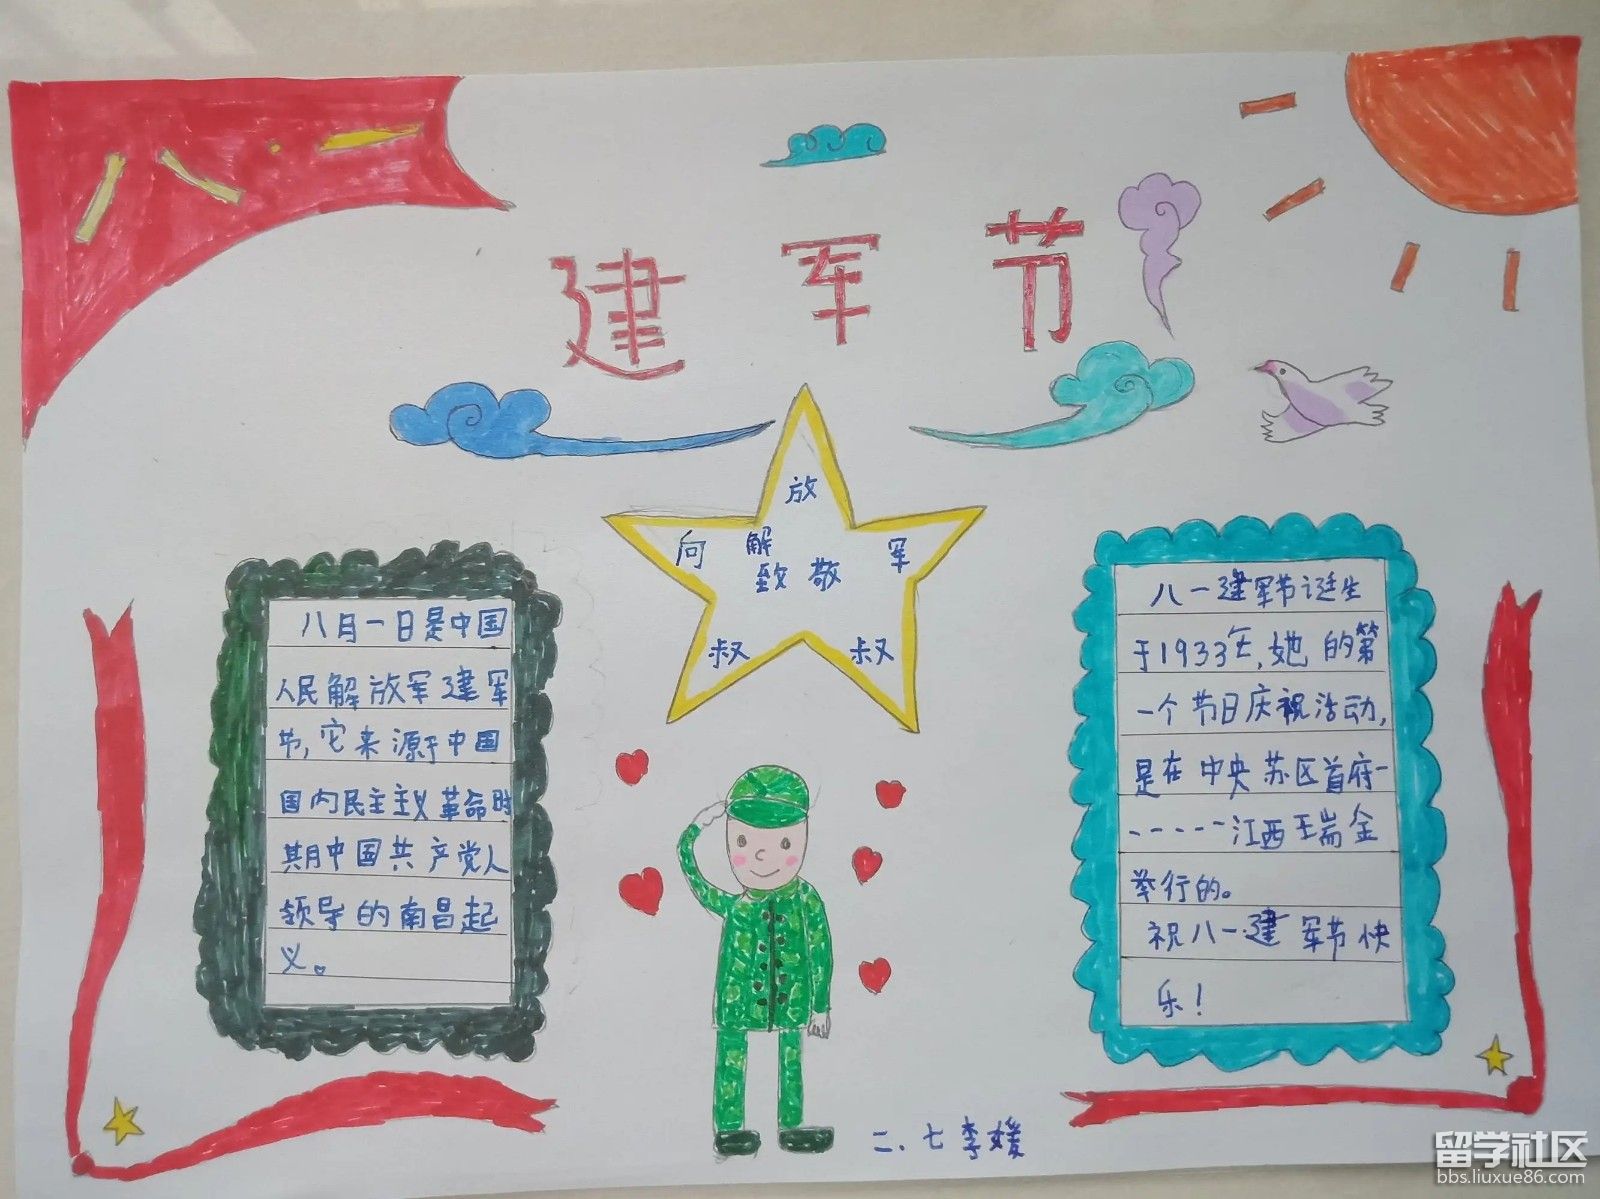 八·一
建军节
放
向解军
致敬
叔叔
八月一日是中国
人民解放军建军
节,它来源于中国
国内民主主义革命时
期中国共产党人
领导的南昌起
义。
八一建军节诞生
于1933年,她的第
一个节日庆祝活动,
是在中央苏区首府-
-----江西瑞金
举行的。
祝八一建军节快
乐!
二、七李媛
留学社区
bbs.liuxue86.com